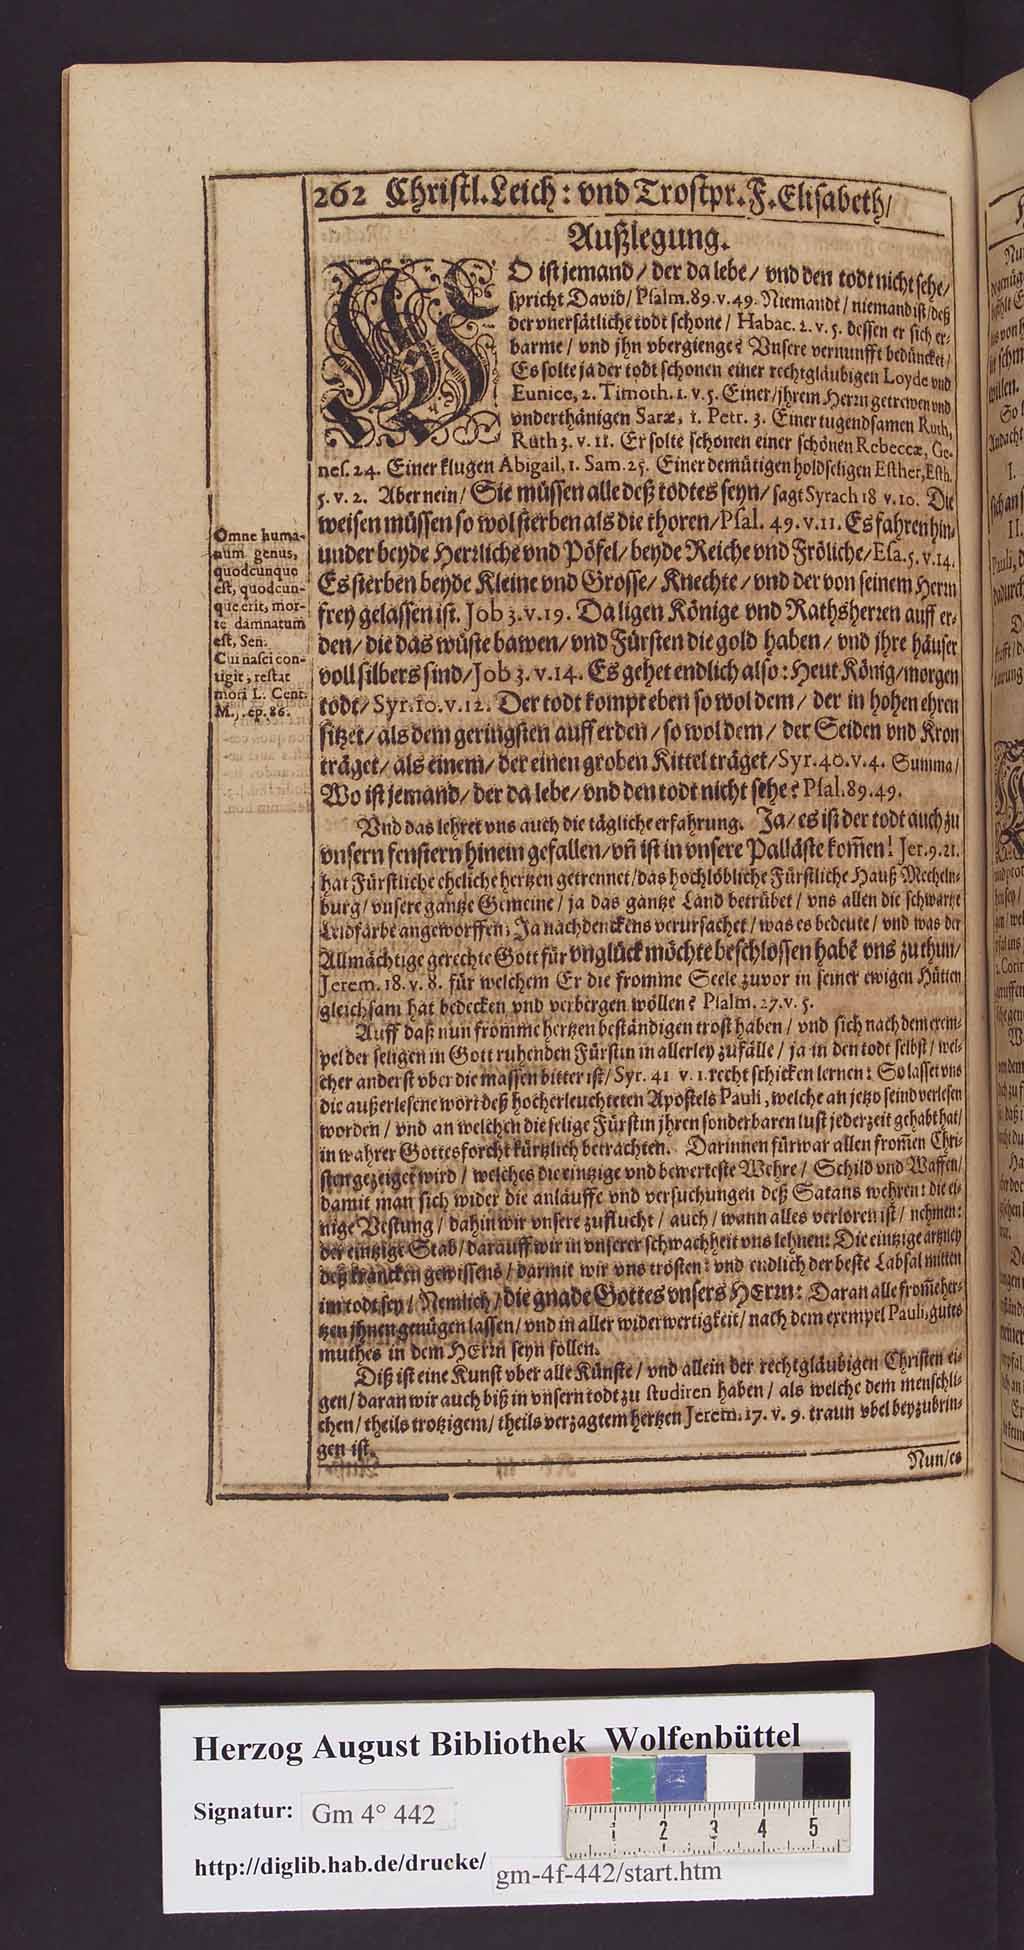 262 Christl. Leich: vnd Trostpr. F. Elisabeth/
Außlegung.
WO ist jemand/ der da lebe/ vnd den todt nicht sehe/
spricht David/ Psalm. 89. v. 49. Niemandt/ niemand ist/ deß
der vnersätliche todt schone/ Habac. 2. v. 5. dessen er sich er-
barme/ vnd jhn vbergienge? Vnsere vernunfft bedüncket/
Es solte ja der todt schonen einer rechtgläubigen Loyde vnd
Eunice, 2. Timoth. 1. v. 5. Einer/ jhrem Herrn getrewen vnd
vnderthänigen Saræ, 1. Petr. 3. Einer tugendsamen Ruth,
Ruth 3. v. 11. Er solte schonen einer schönen Rebeccæ, Ge-
nes. 24. Einer klugen Abigail, 1. Sam. 25. Einer demütigen holdseligen Esther, Esth.
5. v. 2. Aber nein/ Sie müssen alle deß todtes seyn/ sagt Syrach 18 v. 10. Die
weisen müssen so wol sterben als die thoren/ Psal. 49. v. 11. Es fahren hin-
under beyde Herrliche vnd Pöfel/ beyde Reiche vnd Fröliche/ Esa. 5. v. 14.
Es sterben beyde Kleine vnd Grosse/ Knechte/ vnd der von seinem Herrn
frey gelassen ist. Job 3. v. 19. Da ligen Könige vnd Rathsherren auff er-
den/ die das wüste bawen/ vnd Fürsten die gold haben/ vnd jhre häuser
voll silbers sind/ Job 3. v. 14. Es gehet endlich also: Heut König/ morgen
todt/ Syr. 10. v. 12. Der todt kompt eben so wol dem/ der in hohen ehren
sitzet/ als dem geringsten auff erden/ so wol dem/ der Seiden vnd Kron
träget/ als einem/ der einen groben Kittel träget/ Syr. 40. v. 4. Summa/
Wo ist jemand/ der da lebe/ vnd den todt nicht sehe? Psal. 89. 49.
Vnd das lehret vns auch die tägliche erfahrung. Ja/ es ist der todt auch zu
vnsern fenstern hinein gefallen/ vn̄ ist in vnsere Palläste kom̄en! Jer. 9. 21.
hat Fürstliche eheliche hertzen getrennet/ das hochlöbliche Fürstliche Hauß Mecheln-
burg/ vnsere gantze Gemeine/ ja das gantze Land betrübet/ vns allen die schwartze
Leidfarbe angeworffen; Ja nachdenckens verursachet/ was es bedeute/ vnd was der
Allmächtige gerechte Gott für vnglück möchte beschlossen habē vns zu thun/
Jerem. 18. v. 8. für welchem Er die fromme Seele zuvor in seiner ewigen Hütten
gleichsam hat bedecken vnd verbergen wöllen? Psalm. 27. v. 5.
Auff daß nun fromme hertzen beständigen trost haben/ vnd sich nach dem exem-
pel der seligen in Gott ruhenden Fürstin in allerley zufälle/ ja in den todt selbst/ wel-
cher anderst vber die massen bitter ist/ Syr. 41 v. 1. recht schicken lernen: So lasset vns
die außerlesene wort deß hocherleuchteten Apostels Pauli, welche an jetzo seind verlesen
worden/ vnd an welchen die selige Fürstin jhren sonderbaren lust jederzeit gehabt hat/
in wahrer Gottesforcht kürtzlich betrachten. Darinnen fürwar allen from̄en Chri-
sten gezeiget wird/ welches die eintzige vnd bewerteste Wehre/ Schild vnd Waffen/
damit man sich wider die anläuffe vnd versuchungen deß Satans wehren: die ei-
nige Vestung/ dahin wir vnsere zuflucht/ auch/ wann alles verloren ist/ nehmen:
der eintzige Stab/ darauff wir in vnserer schwachheit vns lehnen: Die eintzige artzney
deß krancken gewissens/ darmit wir vns trösten: vnd endlich der beste Labsal mitten
im todt sey/ Nemlich/ die gnade Gottes vnsers HErrn: Daran alle from̄e her-
tzen jhnen genügen lassen/ vnd in aller widerwertigkeit/ nach dem exempel Pauli, gutes
muthes in dem HErrn seyn sollen.
Diß ist eine Kunst vber alle Künste/ vnd allein der rechtgläubigen Christen ei-
gen/ daran wir auch biß in vnsern todt zu studiren haben/ als welche dem menschli-
chen/ theils trotzigem/ theils verzagtem hertzen Jerem. 17. v. 9. traun vbel beyzubrin-
gen ist.
Nun/ es
Omne huma-
num genus,
quodcunque
est, quodcun-
que erit, mor-
te damnatum
est, Sen.
Cui nasci con-
tigit, restat
mori L. Cent.
M. ep. 86.
Herzog August Bibliothek Wolfenbüttel
Signatur: Gm 4° 442
http://diglib.hab.de/drucke/ gm-4f-442/start.htm
1 2 3 4 5